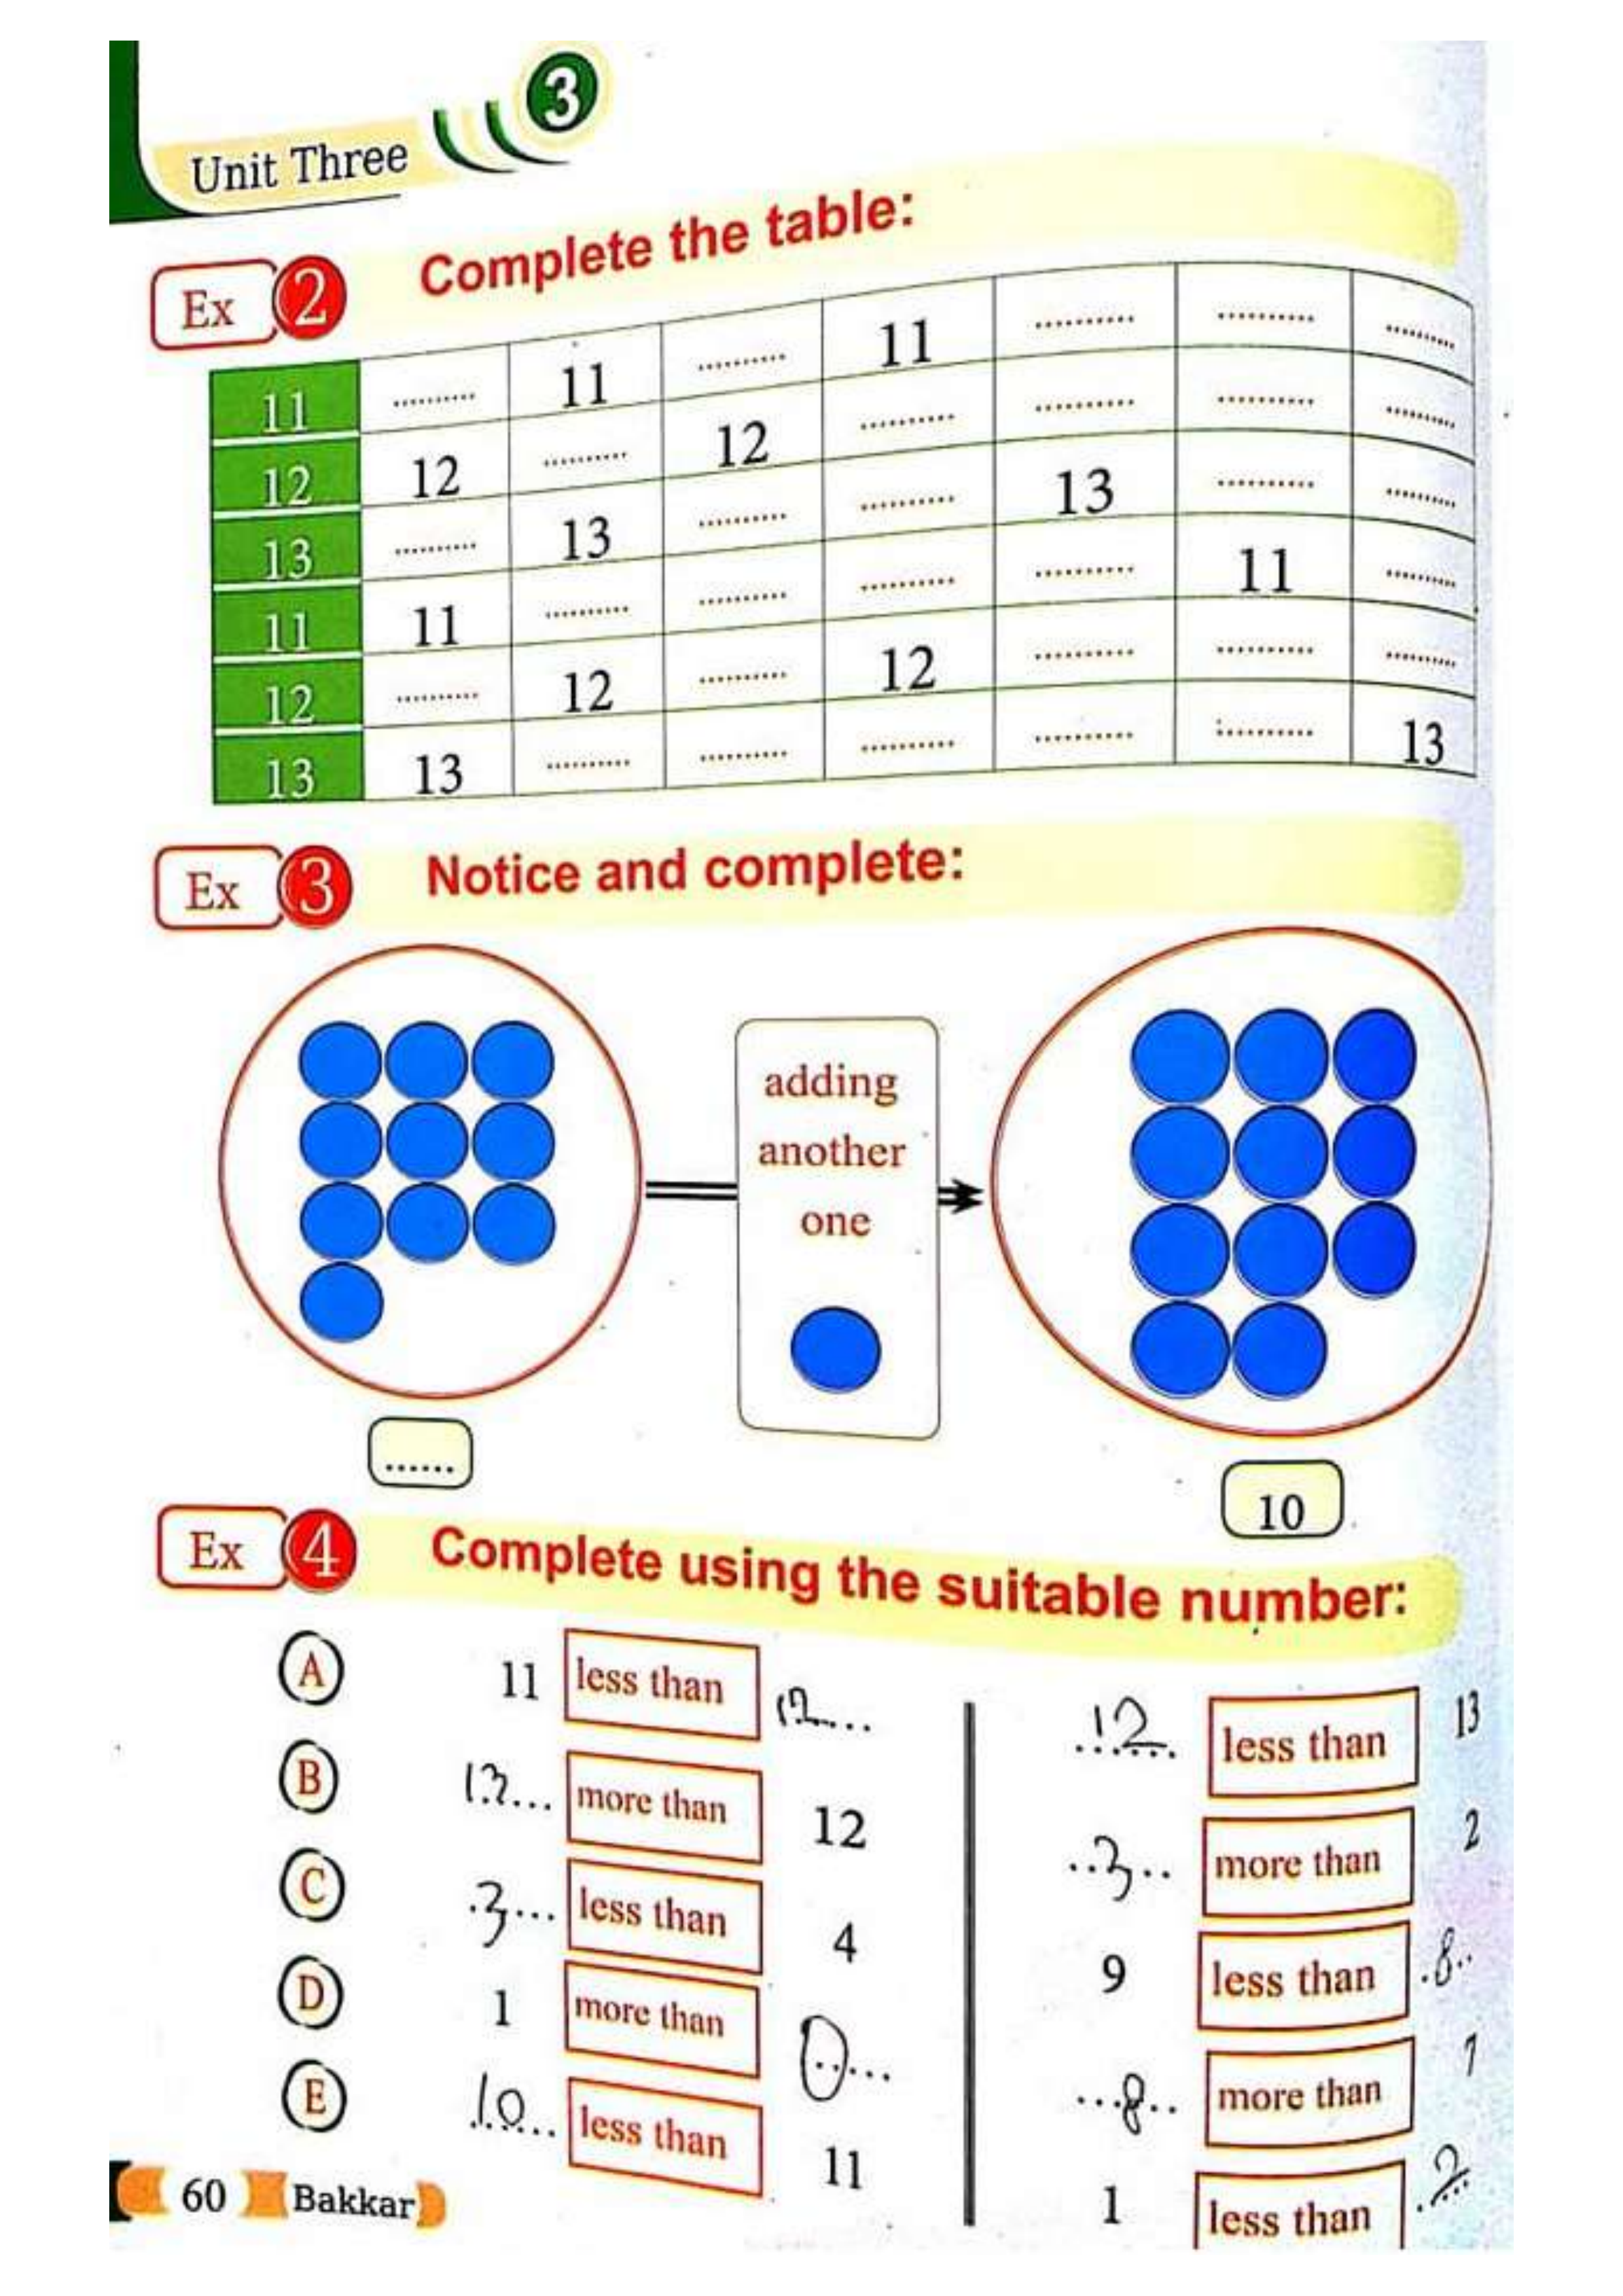 3
Unit Three
Ex 2 Complete the table:
11 .......... 11 .......... 11 .......... .......... ..........
12 12 .......... 12 .......... .......... .......... ..........
13 .......... 13 .......... .......... 13 .......... ..........
11 11 .......... .......... .......... .......... 11 ..........
12 .......... 12 .......... 12 .......... .......... ..........
13 13 .......... .......... .......... .......... .......... 13
Ex 3 Notice and complete:
adding
another
one
......
10
Ex 4 Complete using the suitable number:
A 11 less than 12 12 less than 13
B 13 more than 12 3 more than 2
C 3 less than 4 9 less than 8
D 1 more than 0 8 more than 7
E 10 less than 11 1 less than 2
60 Bakkar